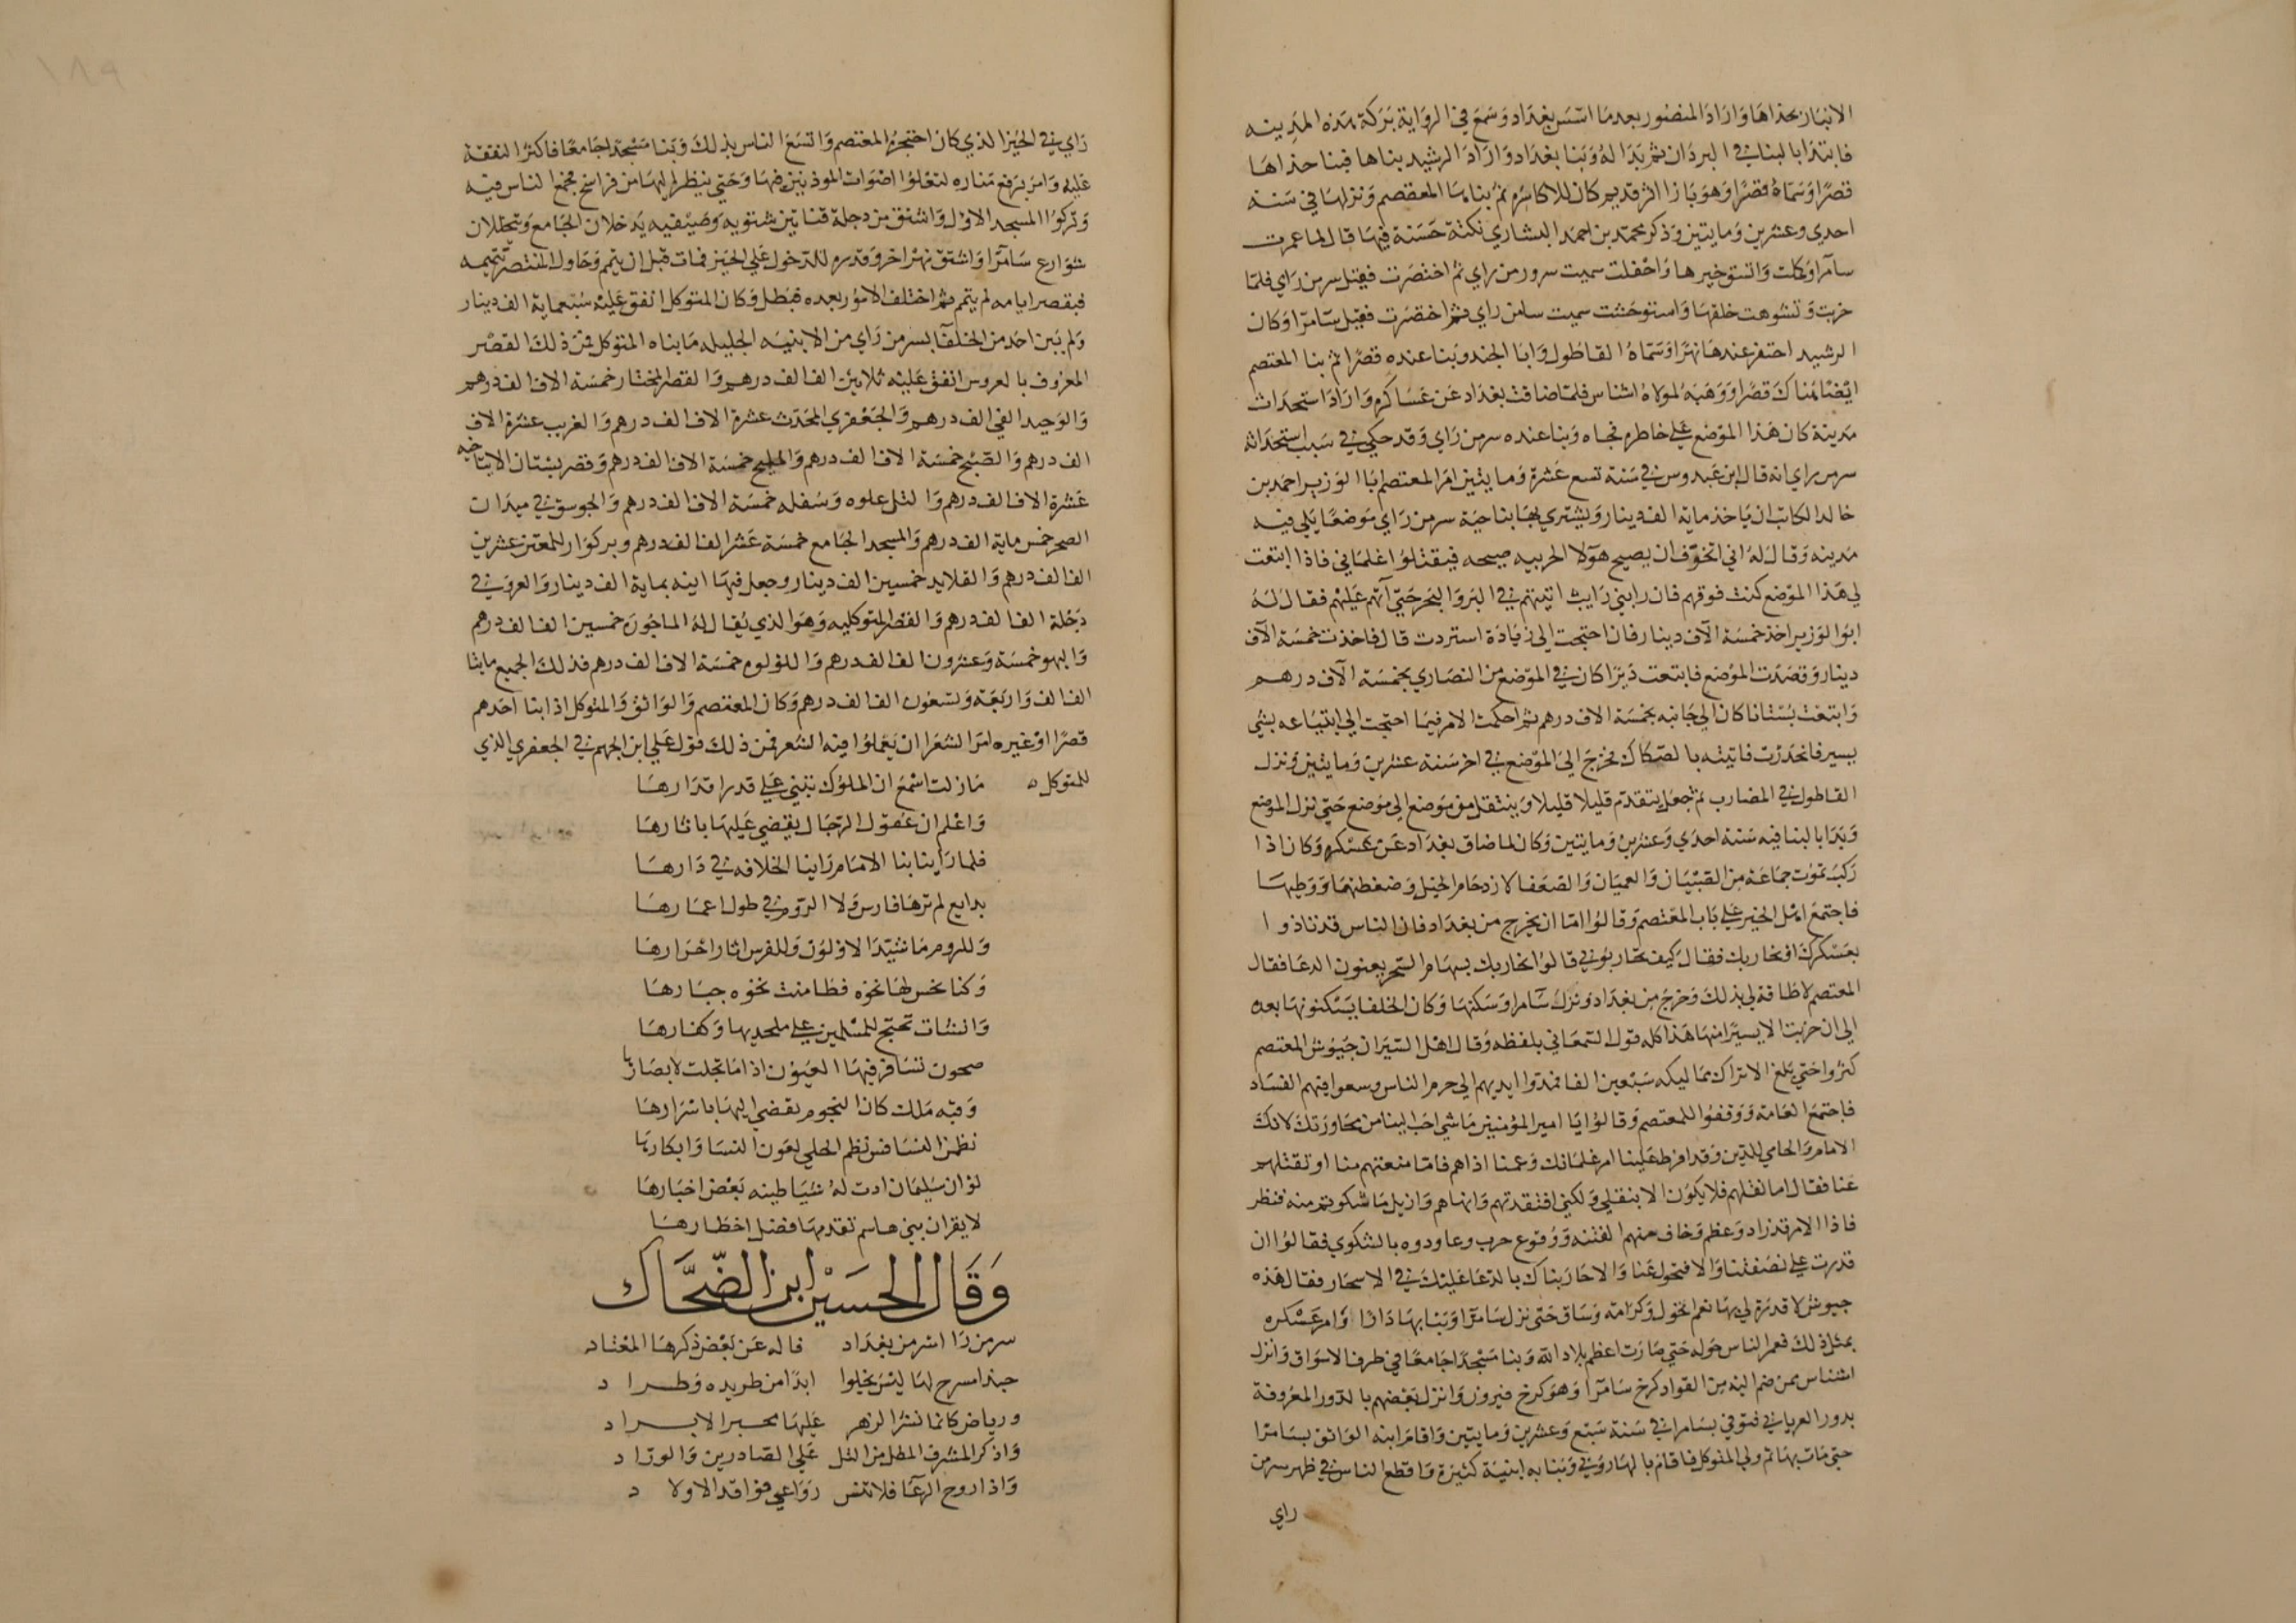 الانبار بحذاها واراد المنصور بعد ما اسس بغداد وسمع في الرواية بركة هذه المدينه
فابتدا بالبنا في البردان ثم بدا له وبنا بغداد واراد الرشيد بناها فبنا حذاها
قصرا وسماه قصرا وهو بازا اثر قديم كان للاكاسره ثم بناها المعتصم ونزلها في سنة
احدي وعشرين ومايتين وذكر محمد بن احمد البشاري نكتة حسنة فيها قال لما عمرت
سامرا وكملت واتسق خيرها واحفلت سميت سرور من راي ثم اختصرت فقيل سر من راي فلما
خربت وتشوهت خلقتها واستوحشت سميت سا من راي ثم اختصرت فقيل سامرا وكان
الرشيد احتفر عندها نهرا وسماه القاطول وابا الجند وبنا عنده قصرا ثم بنا المعتصم
ايضا هناك قصرا ووهبه لمولاه اشناس فلما ضاقت بغداد عن عساكره واراد استحداث
مدينة كان هذا الموضع علي خاطره فجاه وبنا عنده سر من راي وقد حكي في سبب استحداثه
سر من راي انه قال ابن عبدوس في سنة تسع عشرة ومايتين امر المعتصم ابا الوزير احمد بن
خالد الكاتب ان ياخذ ماية الف دينار ويشتري بها بناحية سر من راي موضعا يبني فيه
مدينه وقال له اني اتخوف ان يصيح هولا الحربيه صيحه فيقتلوا غلماني فاذا ابتعت
لي هذا الموضع كنت فوقهم فان رابني رايب اتيتهم في البر والبحر حتي اتي عليهم فقال له
ابو الوزير اخذ خمسة الاف دينار فان احتجت الي زيادة استزدت قال فاخذت خمسة الاف
دينار وقصدت الموضع فابتعت ديرا كان في الموضع من النصاري بخمسة الاف درهم
وابتعت بستانا كان الي جانبه بخمسة الاف درهم ثم احكمت الامر فيما احتجت الي ابتياعه بشي
يسير فانحدرت فاتيته بالصكاك فخرج الي الموضع في اخر سنة عشرين ومايتين ونزل
القاطول في المضارب ثم جعل يتقدم قليلا قليلا وينتقل من موضع الي موضع حتي نزل الموضع
وبدا بالبنا فيه سنة احدي وعشرين ومايتين وكان لما ضاق بغداد عن عسكره وكان اذا
ركب يموت جماعة من الصبيان والعميان والضعفا لازدحام الخيل وضغطتها ووطيها
فاجتمع اهل الخير علي باب المعتصم وقالوا اما ان يخرج من بغداد فان الناس قد تاذوا
بعسكرك او نحاربك فقال كيف تحاربوني قالوا نحاربك بسهام السحر يعنون الدعا فقال
المعتصم لا طاقة لي بذلك وخرج من بغداد ونزل سامرا وسكنها وكان الخلفا يسكنونها بعده
الي ان خربت الا يسيرا منها هذا كله قول السمعاني بلفظه وقال اهل السير ان جيوش المعتصم
كثروا حتي بلغ الاتراك مماليكه سبعين الفا فمدوا ايديهم الي حرم الناس وسعوا فيهم الفساد
فاجتمع العامة ووقفوا للمعتصم وقالوا يا امير المؤمنين ما شي احب الينا من مجاورتك لانك
الامام والحامي للدين وقد افرط علينا امر غلمانك وعمنا اذاهم فاما منعتهم منا او تقتلهم
عنا فقال اما نقلهم فلا يكون الا بنقلي ولكني افتقدتهم وانهاهم وازيل ما شكوتم منه فنظر
فاذا الامر قد زاد وعظم وخاف منهم الفتنه ووقوع حرب وعاودوه بالشكوي فقالوا ان
قدرت علي نصفتنا والا فتحول عنا والا حاربناك بالدعا عليك في الاسحار فقال هذه
جيوش لا قدرة لي بها نعم اتحول وكرامة وساق حتي نزل سامرا وبنا بها دارا وامر عسكره
بمثل ذلك فعمر الناس حوله حتي صارت اعظم بلاد الله وبنا مسجدا جامعا في طرف الاسواق وانزل
اشناس بمن ضم اليه من القواد كرخ سامرا وهو كرخ فيروز وانزل بعضهم بالدور المعروفة
بدور العرباني فتوفي بسامرا في سنة سبع وعشرين ومايتين واقام ابنه الواثق بسامرا
حتي مات بها ثم ولي المتوكل فاقام بالهاروني وبنا به ابنية كثيرة واقطع الناس في ظهر سر من
راي
راي في الحيز الذي كان احتجزه المعتصم واتسع الناس بذلك وبنا مسجدا جامعا فاكثر النفقة
عليه وامر برفع مناره لتعلوا اصوات الموذنين فيها وحتي ينظر اليها من فراسخ فجمع الناس فيه
وتركوا المسجد الاول واشتق من دجلة قناتين شتويه وصيفيه يدخلان الجامع ويتخللان
شوارع سامرا واشتق نهرا اخر وقدره للدخول علي الحيز فمات قبل ان يتمم وحاول المنتصر تتميمه
فبقصر ايامه لم يتمم ثم اختلف الامور بعده فبطل وكان المتوكل انفق عليه سبعماية الف دينار
ولم يبن احد من الخلفا بسر من راي من الابنيه الجليله ما بناه المتوكل فمن ذلك القصر
المعروف بالعروس انفق عليه ثلاثين الف الف درهم والقصر المختار خمسة الاف الف درهم
والوحيد الفي الف درهم والجعفري المحدث عشرة الاف الف درهم والغريب عشرة الاف
الف درهم والصبح خمسة الاف الف درهم والمليح خمسة الاف الف درهم وقصر بستان الايتاخيه
عشرة الاف الف درهم والتل علوه وسفله خمسة الاف الف درهم والجوسق في ميدان
الصحر خمس ماية الف درهم والمسجد الجامع خمسة عشر الف الف درهم وبركوار للمعتز عشرين
الف الف درهم والقلايد خمسين الف دينار وجعل فيها ابنه بماية الف دينار والعرو في
دجلة الف الف درهم والقصر المتوكليه وهو الذي يقال له الماجون خمسين الف الف درهم
والبهو خمسة وعشرون الف الف درهم واللولوه خمسة الاف الف درهم فذلك الجميع مايتا
الف الف واربعة وتسعون الف الف درهم وكان المعتصم والواثق والمتوكل اذا بنا احدهم
قصرا او غيره امر الشعرا ان يعملوا فيه الشعر فمن ذلك قول علي ابن الجهم في الجعفري الذي
للمتوكل ه مازلت اسمع ان الملوك تبني علي قدر اقدارها
واعلم ان عقول الرجال يقضي عليها باثارها
فلما راينا بنا الامام راينا الخلافه في دارها
بدايع لم ترها فارس ولا الروم في طول اعمارها
وللروم ما شيدا الاولون وللفرس اثار احرارها
وكنا نحس لها نخوه فطامنت نخوه جبارها
وانشات تحتج للمسلمين علي ملحديها وكفارها
صحون تسافر فيها العيون اذا ما تجلت لابصارها
وقبه ملك كان النجوم تقضي اليها باسرارها
نظمن الفسافس نظم الحلي لعون النسا وابكارها
لو ان سليمان ادت له شياطينه بعض اخبارها
لايقن ان بني هاشم تقدمها فضل اخطارها
وقال الحسين ابن الضحاك
سر من را اسر من بغداد فاله عن بعض ذكرها المعتاد
حبذا مسرح لها ليس يخلوا ابدا من طريده وطراد
ورياض كانما نشر الزهر عليها محبر الابراد
واذكر المشرف المطل من التل علي الصادرين والوراد
واذا روح الرعا فلا تنس رواعي فراقد الاولاد